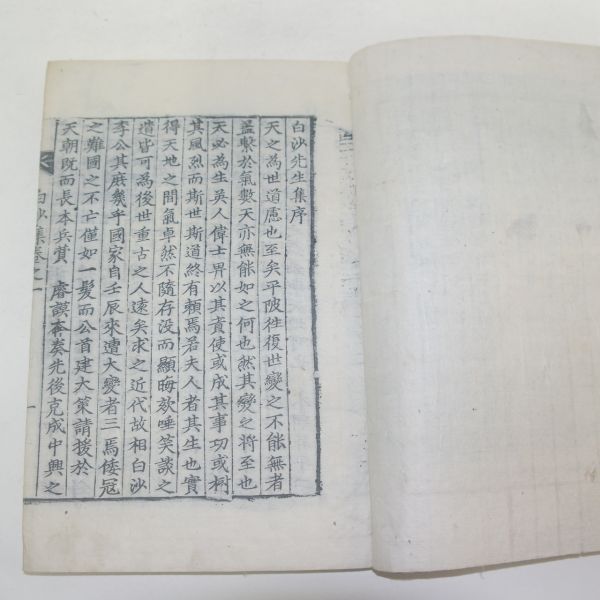 白沙先生集序
天之為世道慮也至矣平陂往復世變之不能無者
盖繫於氣數天亦無能如之何也然其變之將至也
天必為生異人偉士畀以其責使或成其事功或樹
其風烈而斯世斯道終有賴焉若夫人者其生也實
得天地之間氣卓然不隨存没而顯晦欬唾笑談之
遺皆可為後世重古之人遠矣求之近代故相白沙
李公其庶幾乎國家自壬辰來遭大變者三焉倭冦
之難國之不亡僅如一髮而公首建大策請援於
天朝既而長本兵賛 睿謨奔奏先後克成中興之
白沙集卷之一
一